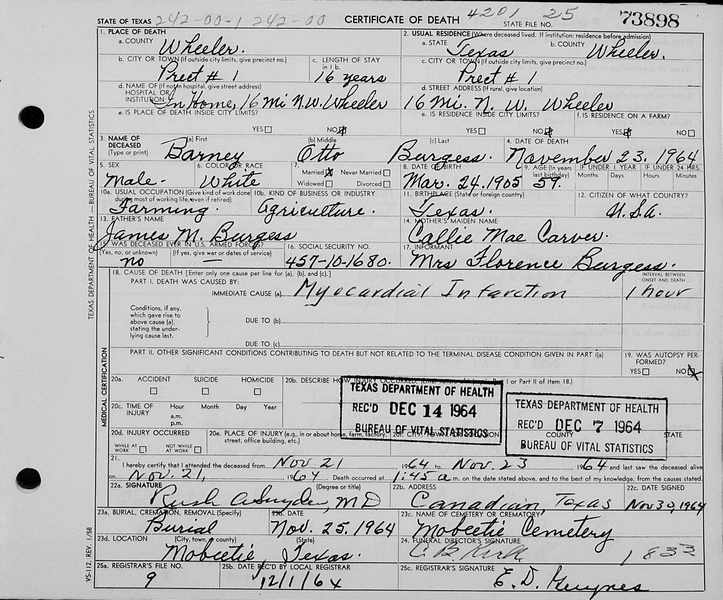 STATE OF TEXAS 242-00-1 242-00 CERTIFICATE OF DEATH 4201 25 STATE FILE NO. 73898
1. PLACE OF DEATH 2. USUAL RESIDENCE (Where deceased lived. If institution: residence before admission)
a. COUNTY Wheeler. a. STATE Texas b. COUNTY Wheeler.
b. CITY OR TOWN (If outside city limits, give precinct no.) c. LENGTH OF STAY in 1 b. c. CITY OR TOWN (If outside city limits, give precinct no.)
Prect # 1 16 years Prect # 1
d. NAME OF (If not in hospital, give street address) HOSPITAL OR INSTITUTION d. STREET ADDRESS (If rural, give location)
In Home, 16 Mi N.W. Wheeler 16 Mi. N. W. Wheeler
e. IS PLACE OF DEATH INSIDE CITY LIMITS? e. IS RESIDENCE INSIDE CITY LIMITS? f. IS RESIDENCE ON A FARM?
YES NO YES NO YES NO
3. NAME OF DECEASED (Type or print) (a) First (b) Middle (c) Last 4. DATE OF DEATH
Barney Otto Burgess. November 23, 1964
5. SEX 6. COLOR OR RACE 7. Married Never Married Widowed Divorced 8. DATE OF BIRTH 9. AGE (In years last birthday) IF UNDER 1 YEAR IF UNDER 24 HRS.
Months Days Hours Minutes
Male. White Mar. 24. 1905 59.
10a. USUAL OCCUPATION (Give kind of work done during most of working life, even if retired) 10b. KIND OF BUSINESS OR INDUSTRY 11. BIRTHPLACE (State or foreign country) 12. CITIZEN OF WHAT COUNTRY?
Farming. Agriculture. Texas. U.S.A.
13. FATHER'S NAME 14. MOTHER'S MAIDEN NAME
James M. Burgess Callie Mae Carver.
15. WAS DECEASED EVER IN U.S. ARMED FORCES? 16. SOCIAL SECURITY NO. 17. INFORMANT
(Yes, no, or unknown) (If yes, give war or dates of service)
no — 457-10-1680. Mrs Florence Burgess.
18. CAUSE OF DEATH [Enter only one cause per line for (a), (b), and (c).] INTERVAL BETWEEN ONSET AND DEATH
PART I. DEATH WAS CAUSED BY:
IMMEDIATE CAUSE (a) Myocardial Infarction 1 hour
Conditions, if any, which gave rise to above cause (a), stating the underlying cause last.
DUE TO (b)
DUE TO (c)
PART II. OTHER SIGNIFICANT CONDITIONS CONTRIBUTING TO DEATH BUT NOT RELATED TO THE TERMINAL DISEASE CONDITION GIVEN IN PART I(a) 19. WAS AUTOPSY PERFORMED?
YES NO
20a. ACCIDENT SUICIDE HOMICIDE 20b. DESCRIBE HOW INJURY OCCURRED. (Enter nature of injury in Part I or Part II of item 18.)
20c. TIME OF INJURY Hour Month Day Year
a.m.
p.m.
TEXAS DEPARTMENT OF HEALTH
REC'D DEC 14 1964
BUREAU OF VITAL STATISTICS
TEXAS DEPARTMENT OF HEALTH
REC'D DEC 7 1964
BUREAU OF VITAL STATISTICS
20d. INJURY OCCURRED 20e. PLACE OF INJURY (e.g., in or about home, farm, factory, street, office building, etc.) 20f. CITY, TOWN, OR LOCATION COUNTY STATE
WHILE AT WORK NOT WHILE AT WORK
21. I hereby certify that I attended the deceased from Nov 21 1964 to Nov. 23 1964 and last saw the deceased alive
on Nov. 21, 1964 Death occurred at 1:45 a m. on the date stated above, and to the best of my knowledge, from the causes stated.
22a. SIGNATURE (Degree or title) 22b. ADDRESS 22c. DATE SIGNED
Rush A Snyder, MD Canadian, Texas Nov 30, 1964
23a. BURIAL, CREMATION, REMOVAL (Specify) 23b. DATE 23c. NAME OF CEMETERY OR CREMATORY
Burial Nov. 25, 1964 Mobeetie Cemetery
23d. LOCATION (City, town, or county) (State) 24. FUNERAL DIRECTOR'S SIGNATURE
Mobeetie, Texas. 1833
25a. REGISTRAR'S FILE NO. 25b. DATE REC'D BY LOCAL REGISTRAR 25c. REGISTRAR'S SIGNATURE
9 12/1/64 E. D.
TEXAS DEPARTMENT OF HEALTH — BUREAU OF VITAL STATISTICS
MEDICAL CERTIFICATION
VS-112, REV. 1/58